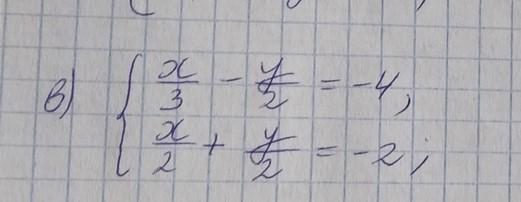 в) { x/3 - y/2 = -4,
x/2 + y/2 = -2;